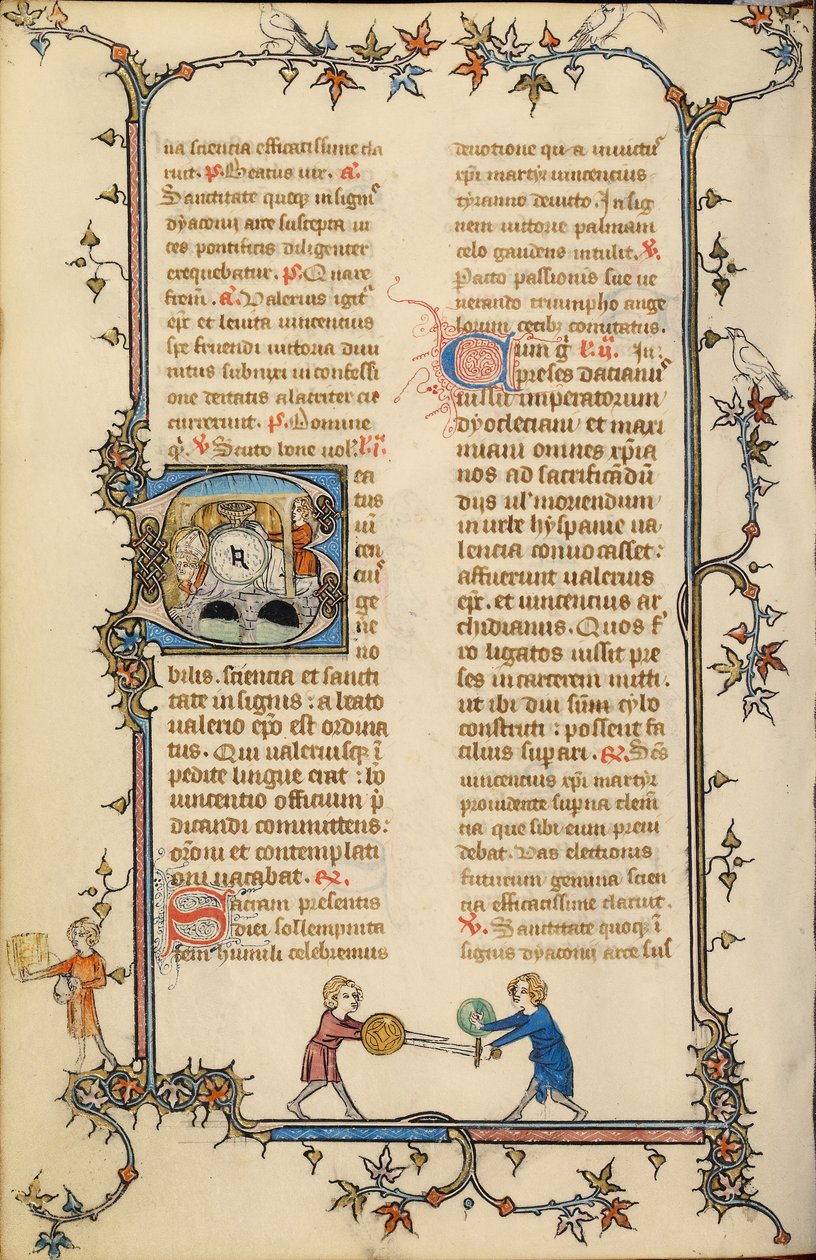 na sciencia efficatissime cla
ruit. p̃. Beatus vir. a.
Sanctitate quoqꝫ insignis
dyaconii arce suscepta ui
ces pontificis diligenter
exequebatur. p̃. Quare
frem̃. a. Valerius igit᷑
ep̃c et levita vincencius
spe fruendi victoria diui
nitus subnixi in confessi
one deitatis alacriter cu
currerunt. p̃. Domine
q̃. ꝟ Scuto bone uol. l. i.
Bea
tus
uin
cen
cius
ge
ne
no
bilis. sciencia et sancti
tate insignis : a beato
valerio ep̃o est ordina
tus. Qui valeriusqꝫ ĩ
pedite lingue erat : bõ
vincentio officium p̃
dicandi committens :
or̃oni et contemplati
oni vacabat. R̃.
Sacram presentis
diei sollempnita
tem humili celebremus
devotione qu a inuictus
xp̃i martyr vincencius
tyranno devicto. Insig
nem victorie palmam
celo gaudens intulit. ꝟ.
Pacto passionis sue ve
nerando triumpho ange
lorum cetibꝫ comitatus.
Cum g̃ l. ii. In
preses dacianus
iussu imperatorum
dyocleciani et maxi
miani omnes xp̃ia
nos ad sacrificãdũ
diis ul' moriendum
in urbe hyspanie va
lencia convocasset :
affuerunt valerius
ep̃c. et vincencius ar
chidianus. Quos fer
ro ligatos iussit pre
ses in carcerem mitti.
ut ibi diu fam̃ cylo
constricti : possent fa
cilius sup̃ari. R̃. Sc̃s
vincencius xp̃i martyr
providente sup̃na clem̃
tia que sibi eum previ
debat. Vas electionis
futurum gemina scien
tia efficatissime claruit.
ꝟ. Sanctitate quoqꝫ ĩ
signis dyaconii arce sus